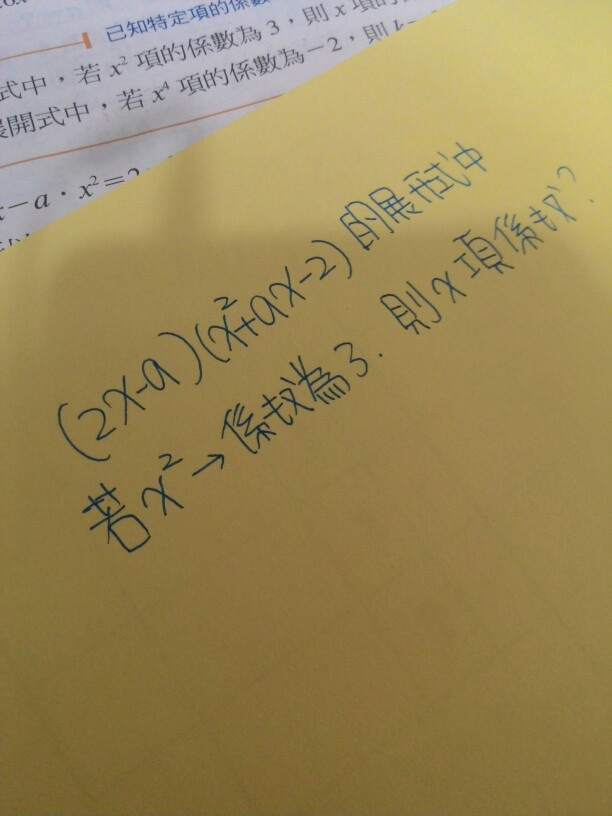 已知特定項的係數
式中，若 x² 項的係數為 3，則 x 項的
展開式中，若 x⁴ 項的係數為−2，則 k
−a · x²=2
(2x-a)(x²+ax-2) 的展形式中
若 x² → 係数為3. 則 x 項係数?